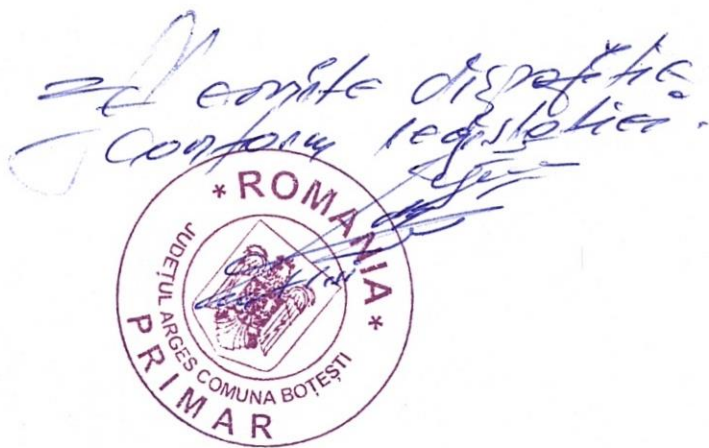 emite dispoziție
conform legislației.
* ROMANIA *
JUDEȚUL ARGEȘ COMUNA BOTEȘTI
PRIMAR